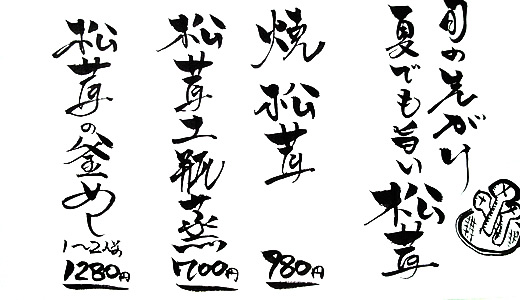 旬の先がけ
夏でも旨い
松茸
焼松茸
980円
松茸土瓶蒸
700円
松茸の釜めし
1〜2人様
1280円